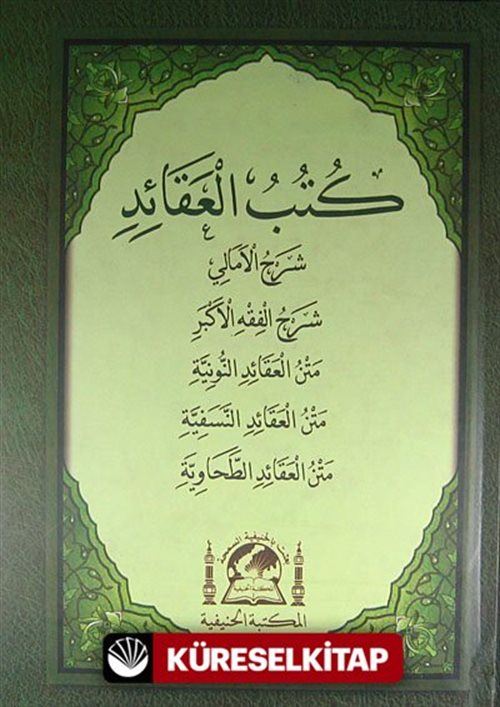 كُتُبُ الْعَقَائِدِ
شَرْحُ الْأَمَالِي
شَرْحُ الْفِقْهِ الْأَكْبَرِ
مَتْنُ الْعَقَائِدِ النُّونِيَّةِ
مَتْنُ الْعَقَائِدِ النَّسَفِيَّةِ
مَتْنُ الْعَقَائِدِ الطَّحَاوِيَّةِ
المكتبة الحنيفية
المكتبة الحنيفية
KÜRESELKİTAP